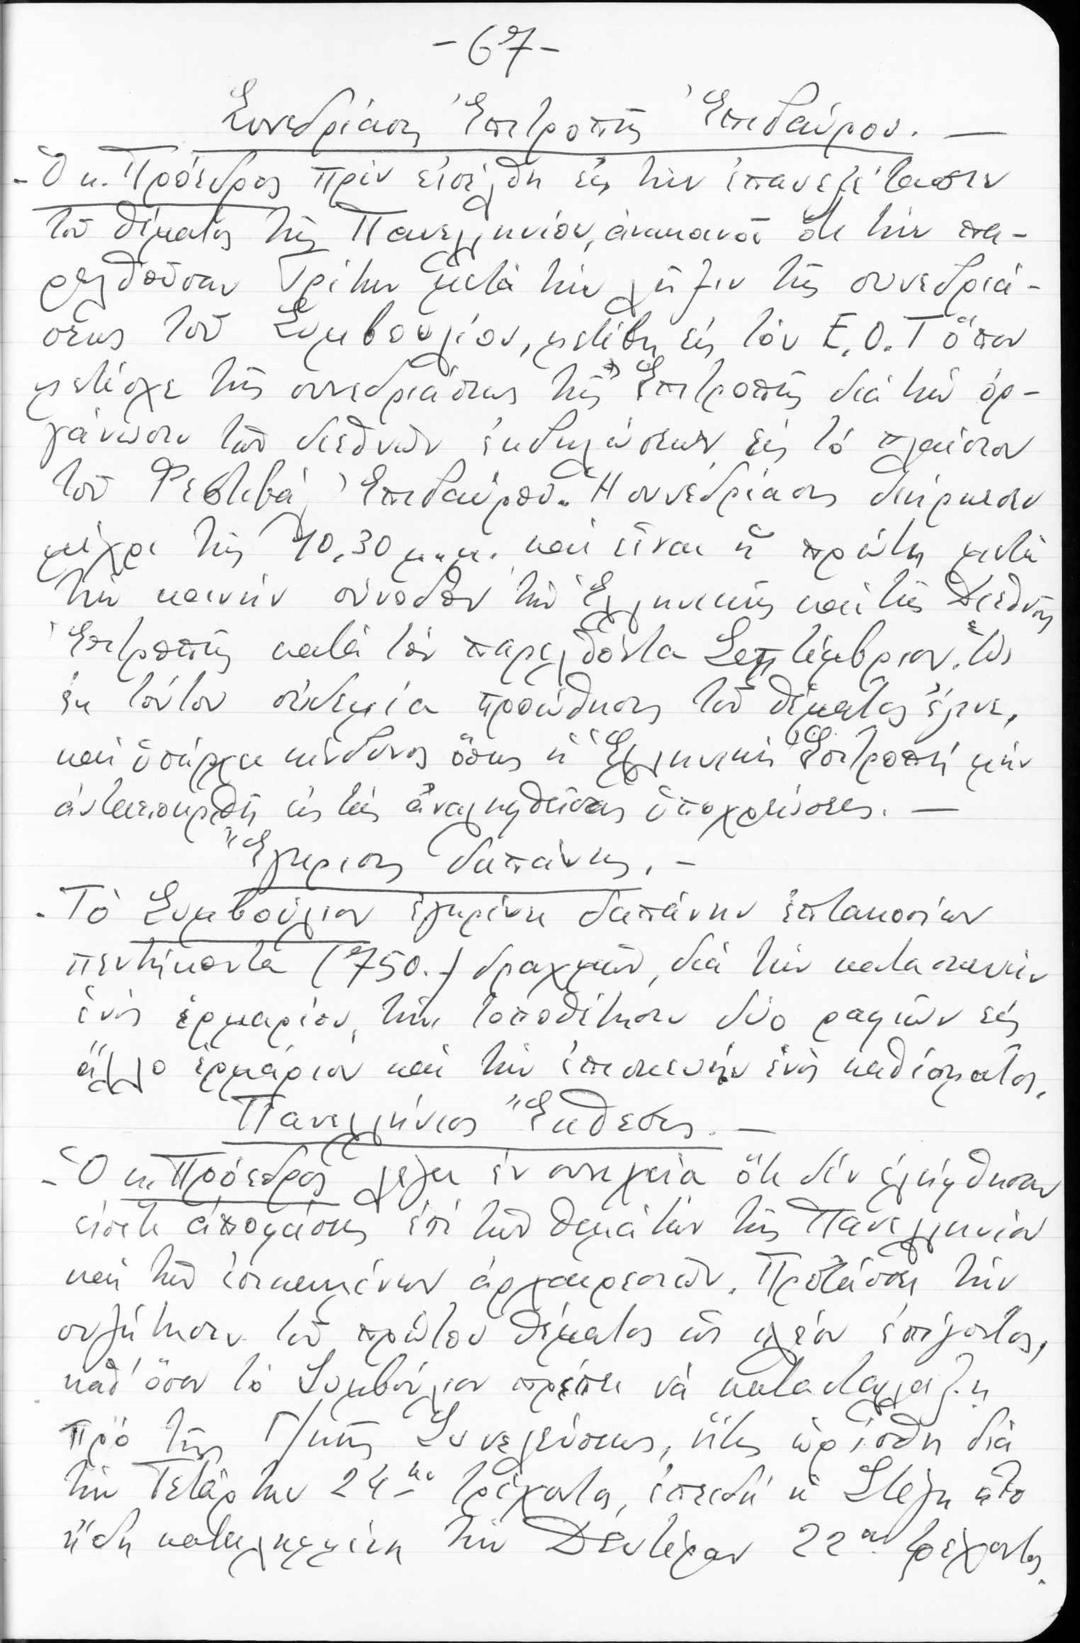 -67-
Συνεδρίασις Ἐπιτροπῆς Ἐπιδαύρου. —
- Ὁ κ. Πρόεδρος πρὶν εἰσέλθη εἰς τὴν ἐπανεξέτασιν
τοῦ θέματος τῆς Πανελληνίου, ἀνακοινοῖ ὅτι τὴν πα-
ρελθοῦσαν Τρίτην μετὰ τὴν λῆξιν τῆς συνεδριά-
σεως τοῦ Συμβουλίου, μετέβη εἰς τὸν Ε.Ο.Τ ὅπου
μετέσχε τῆς συνεδριάσεως τῆς Ἐπιτροπῆς διὰ τὴν ὀρ-
γάνωσιν τῶν διεθνῶν ἐκδηλώσεων εἰς τὸ πλαίσιον
τοῦ Φεστιβάλ Ἐπιδαύρου. Ἡ συνέδρίασις διήρκεσεν
μέχρι τῆς 10.30 μ.μ. καὶ εἶναι ἡ πρώτη μετὰ
τὴν κοινὴν σύνοδον τῆς Ἑλληνικῆς καὶ τῆς Διεθνοῦς
Ἐπιτροπῆς κατὰ τὸν παρελθόντα Σεπτέμβριον. Ὡς
ἐκ τούτου οὐδεμία προώθησις τοῦ θέματος ἔγινε,
καὶ ὑπάρχει κίνδυνος ὅπως ἡ Ἑλληνικὴ Ἐπιτροπή μὴν
ἀνταποκριθῆ εἰς τὰς ἀναληφθείσας ὑποχρεώσεις. —
Ἔγκρισις δαπάνης. —
- Τὸ Συμβούλιον ἐγκρίνει δαπάνην ἑπτακοσίων
πεντήκοντα (750.-) δραχμῶν, διὰ τὴν κατασκευὴν
ἑνὸς ἑρμαρίου, τὴν τοποθέτησιν δύο ραφιῶν εἰς
ἄλλο ἑρμάριον καὶ τὴν ἐπισκευὴν ἑνὸς καθίσματος.
Πανελλήνιος Ἔκθεσις. —
- Ὁ κ. Πρόεδρος λέγει ἐν συνεχεία ὅτι δὲν ἐλήφθησαν
εἰσέτι ἀποφάσεις ἐπὶ τῶν θεμάτων τῆς Πανελληνίου
καὶ τῶν ἐπικειμένων ἀρχαιρεσιῶν. Προτάσσει τὴν
συζήτησιν τοῦ πρώτου θέματος ὡς πλέον ἐπείγοντος,
καθ' ὅσον τὸ Συμβούλιον πρέπει νὰ καταλήξη
πρὸ τῆς Γ/κῆς Συνελεύσεως, ἥτις ὡρίσθη διὰ
τὴν Τετάρτην 24ην τρέχοντος, ἐπειδὴ ἡ Στέγη ἦτο
ἤδη κατειλημμένη τὴν Δευτέραν 22αν τρέχοντος.